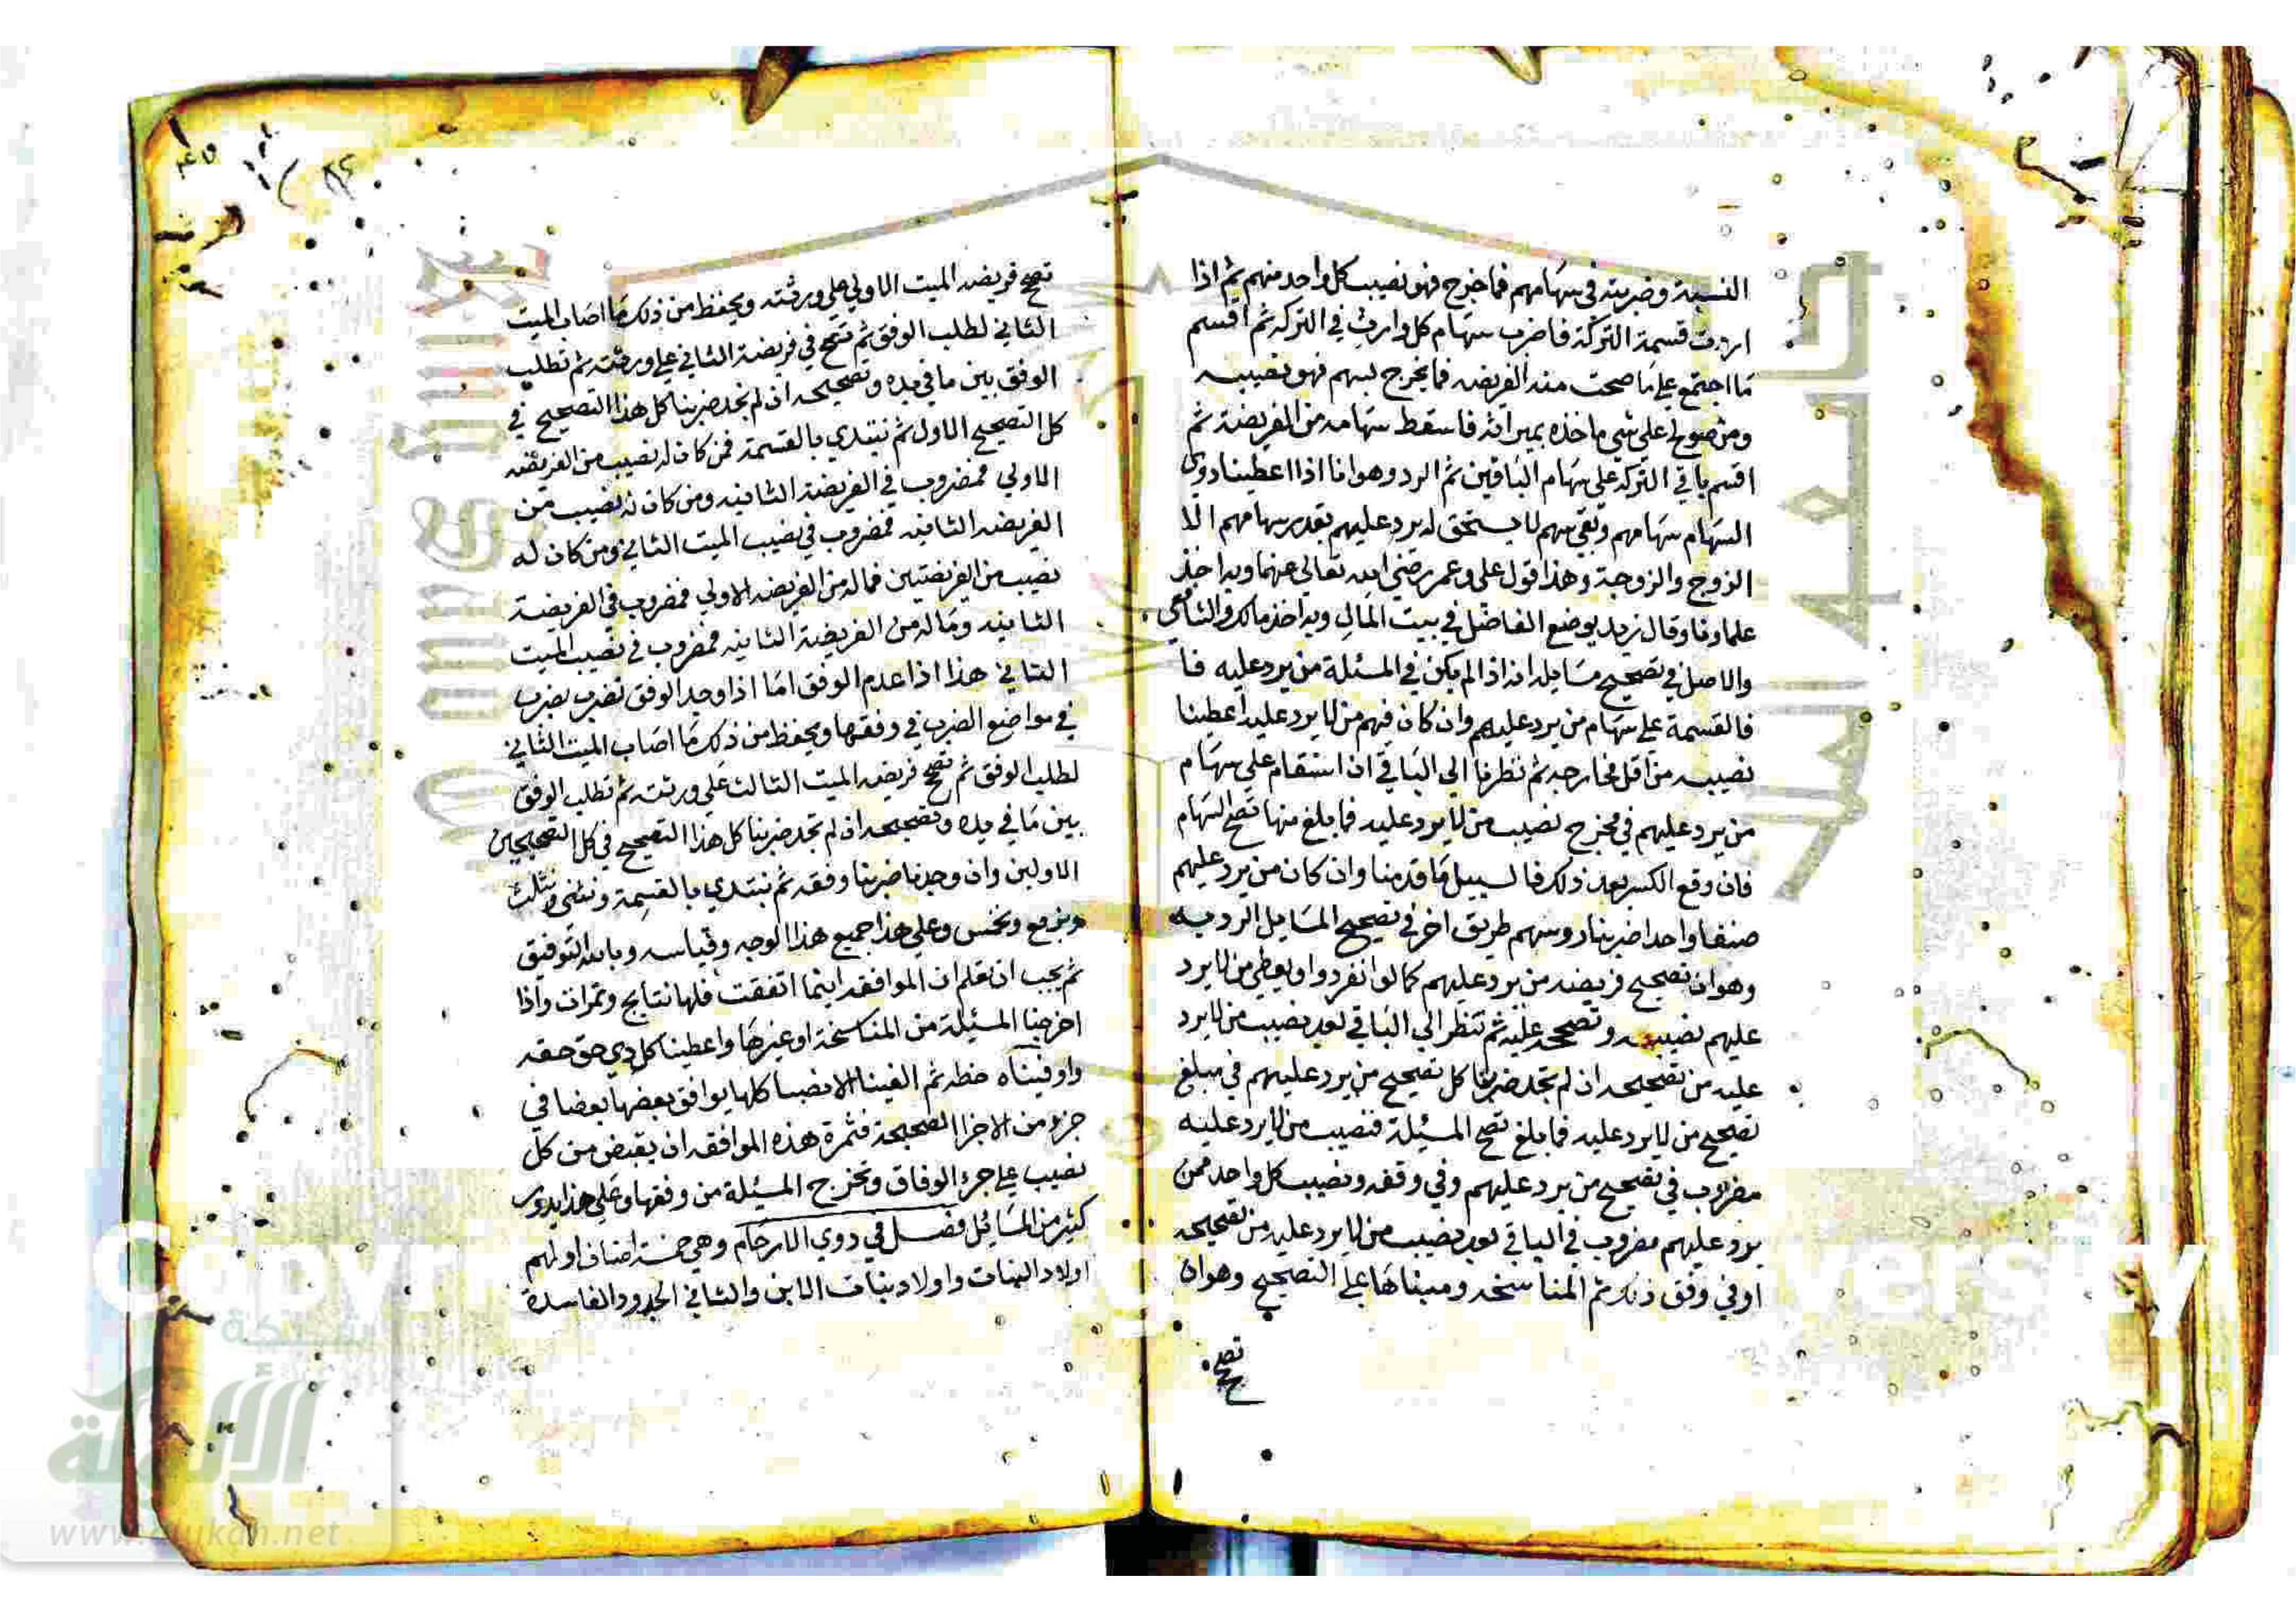 النسبة وضربته في سهامهم فما خرج فهو نصيب كل واحد منهم ثم اذا
اردت قسمة التركة فاضرب سهام كل وارث في التركة ثم اقسم
ما اجتمع على ما صحت منه الفريضه فما يخرج لسهم فهو نصيبه
ومن صولح على شي ماخذه بميراثه فاسقط سهامه من الفريضة ثم
اقسم باقي التركه على سهام الباقين ثم الرد وهو انا اذا اعطينا ذوي
السهام سهامهم وبقي سهم لا يستحق له يرد عليهم بقدر سهامهم الا
الزوج والزوجة وهذا قول علي وعمر رضي الله تعالى عنهما وبه اخذ
علماونا وقال زيد يوضع الفاضل في بيت المال وبه اخذ مالك والشافعي
والاصل في تصحيح مسايله انه اذا لم يكن في المسئلة من يرد عليه فا
فالقسمة على سهام من يرد عليهم وان كان فيهم من لا يرد عليه اعطينا
نصيبه من اقل مخارجه ثم نظرنا الى الباقي ان استقام على سهام
من يرد عليهم في مخرج نصيب من لا يرد عليه فما بلغ منها تصح السهام
فان وقع الكسر بعد ذلك فالسبيل ما قدمنا وان كان من يرد عليهم
صنفا واحدا ضربنا روسهم طريق اخر في تصحيح المسايل الرديه
وهو ان تصحيح فريضه من يرد عليهم كما لو انفردوا ويعطي من لا يرد
عليهم نصيبه وتصححه عليه ثم تنظر الى الباقي بعد نصيب من لا يرد
عليه من تصحيحه ان لم تجد ضربنا كل تصحيح من يرد عليهم في مبلغ
تصحيح من لا يرد عليه فما بلغ تصح المسئلة فنصيب من لا يرد عليه
مضروب في تصحيح من يرد عليهم وفي وفقه ونصيب كل واحد ممن
يرد عليهم مضروب في الباقي بعد نصيب من لا يرد عليه من تصحيحه
او في وفق ذلك ثم المناسخه ومبناها على التصحيح وهو ان
تصح
تصح فريضه الميت الاولي على ورثته ويحفظ من ذلك ما اصاب الميت
الثاني لطلب الوفق ثم تصح في فريضة الثاني على ورثته ثم تطلب
الوفق بين ما في يده وتصحيحه ان لم تجد ضربنا كل هذا التصحيح في
كل التصحيح الاول ثم نبتدي بالقسمة فمن كان له نصيب من الفريضه
الاولي فمضروب في الفريضة الثانيه ومن كان له نصيب من
الفريضه الثانيه فمضروب في نصيب الميت الثاني ومن كان له
نصيب من الفريضتين فماله من الفريضه الاولي فمضروب في الفريضة
الثانيه وماله من الفريضة الثانيه فمضروب في نصيب الميت
الثاني هذا اذا عدم الوفق اما اذا وجد الوفق تضرب بضرب
في مواضع الضرب في وفقها ويحفظ من ذلك ما اصاب الميت الثاني
لطلب الوفق ثم تصح فريضه الميت الثالث على ورثته ثم تطلب الوفق
بين ما في يده وتصحيحه ان لم تجد ضربنا كل هذا التصحيح في كل التصحيحين
الاولين وان وجدنا ضربنا وفقه ثم نبتدي بالقسمة ونثني ونثلث
ونربع ونخمس وعلى هذا جميع هذا الوجه وقياسه وبالله التوفيق
ثم يجب ان تعلم ان الموافقه اينما اتفقت فلها نتايج وثمرات واذا
اخرجنا المسئلة من المناسخة او غيرها واعطينا كل ذي حق حقه
واوفيناه حظه ثم الفينا الانصبا كلها يوافق بعضها بعضا في
جزء من الاجزا الصحيحة فثمرة هذه الموافقه ان يقبض من كل
نصيب على جزء الوفاق وتخرج المسئلة من وفقها وعلى هذا يدور
كثير من المسائل فصل في ذوي الارحام وهي خمسة اصناف اولهم
اولاد البنات واولاد بنات الابن والثاني الجدود الفاسدة
شبكة
الألوكة
www.alukah.net